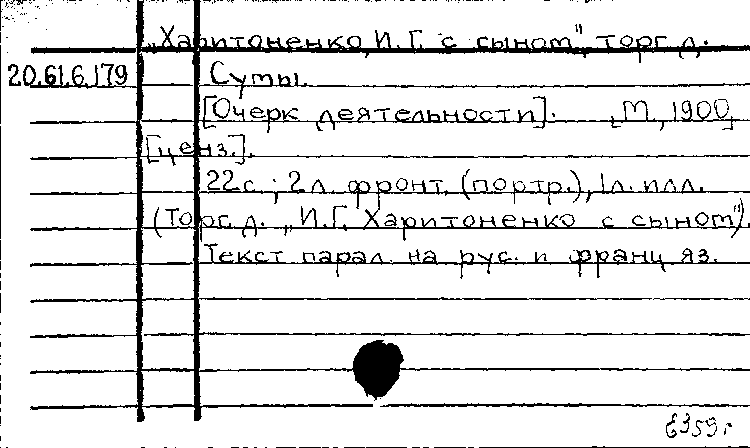 „Харитоненко, И.Г. с сыном", торг. д.
20.61.6.179 Сумы.
[Очерк деятельности]. [М., 1900,
[ценз.].
22с.; 2л. фронт. (портр.), 1л. илл.
(Торг. д. „И.Г. Харитоненко с сыном").
Текст парал. на рус. и франц. яз.